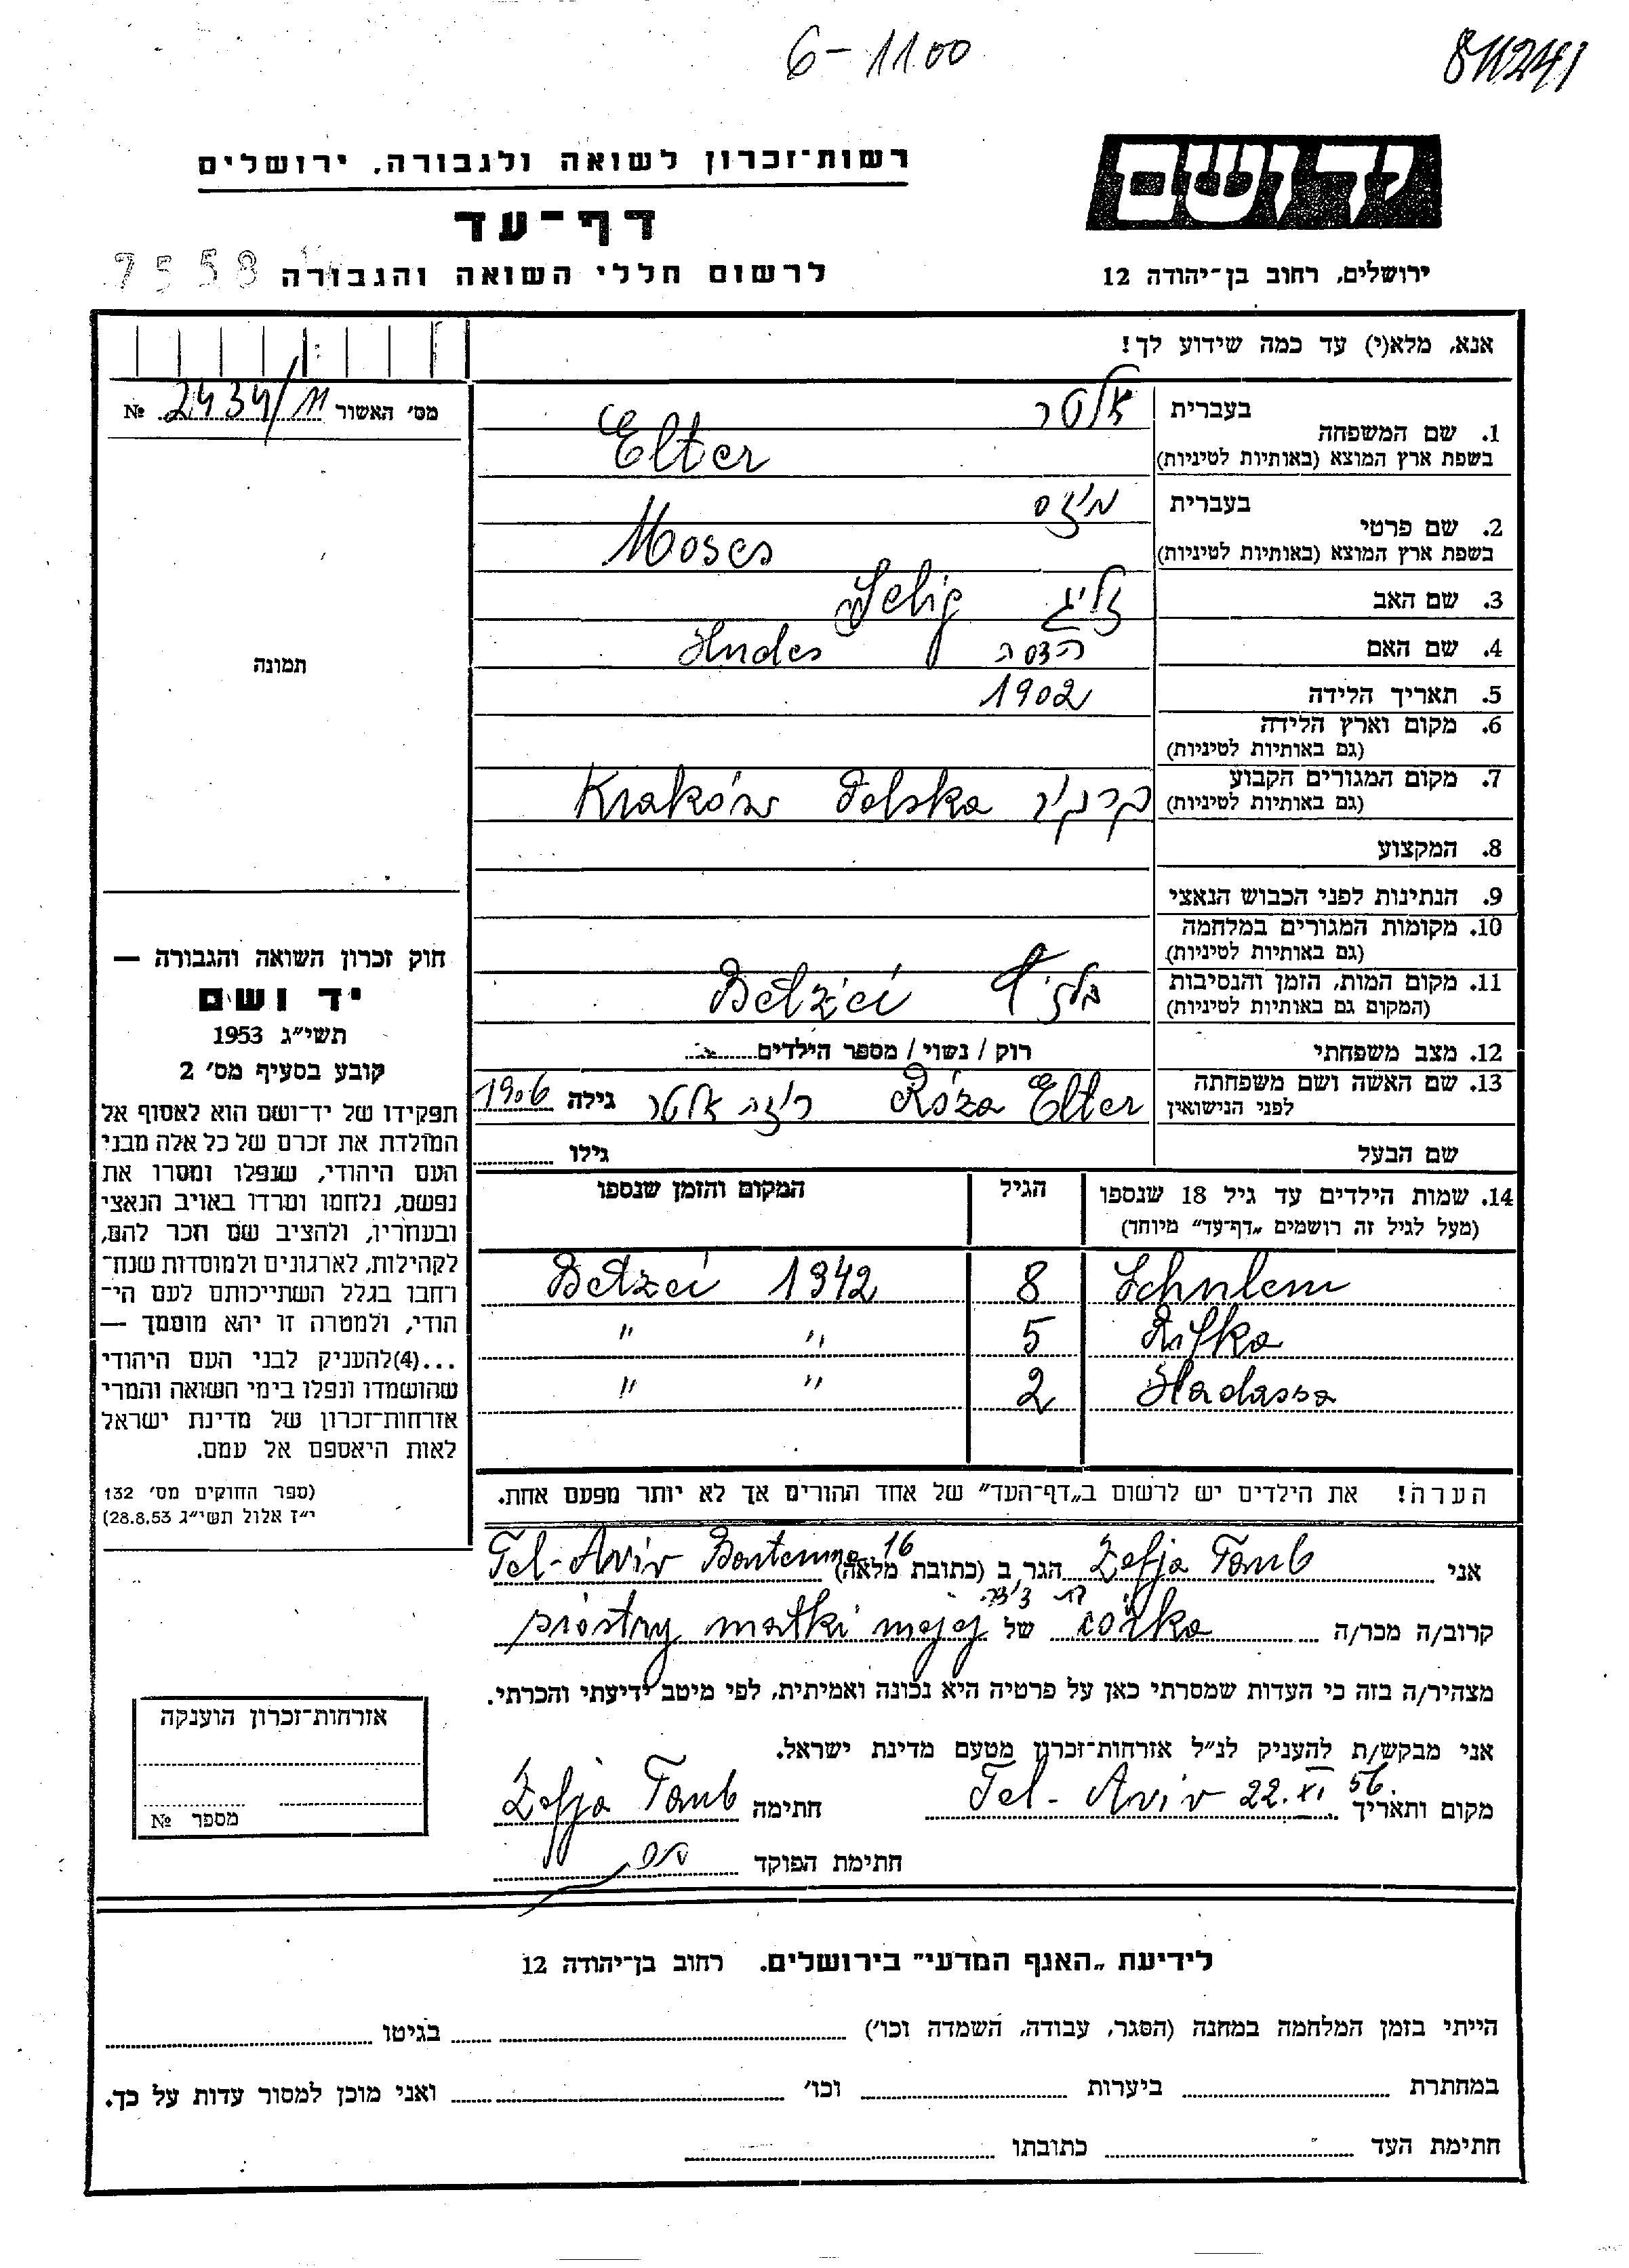 6-1100
811241
יד ושם
רשות־זכרון לשואה ולגבורה, ירושלים
דף־עד
ירושלים, רחוב בן־יהודה 12
לרשום חללי השואה והגבורה
7558
אנא, מלא(י) עד כמה שידוע לך!
מס' האשור 2434/11 №
בעברית אלטר
1. שם המשפחה
בשפת ארץ המוצא (באותיות לטיניות) Elter
בעברית מוזס
2. שם פרטי
בשפת ארץ המוצא (באותיות לטיניות) Moses
3. שם האב זליג Selig
4. שם האם הדסה Hudes
תמונה
5. תאריך הלידה 1902
6. מקום וארץ הלידה
(גם באותיות לטיניות)
7. מקום המגורים הקבוע
(גם באותיות לטיניות) קרקוב Polska Kraków
8. המקצוע
9. הנתינות לפני הכבוש הנאצי
10. מקומות המגורים במלחמה
(גם באותיות לטיניות)
11. מקום המות, הזמן והנסיבות
(המקום גם באותיות לטיניות) Bełżeć
12. מצב משפחתי רוק / נשוי / מספר הילדים
13. שם האשה ושם משפחתה
לפני הנישואין Róża Elter רוזה אלטר גילה 1906
שם הבעל גילו
14. שמות הילדים עד גיל 18 שנספו
(מעל לגיל זה רושמים „דף־עד" מיוחד)
הגיל
המקום והזמן שנספו
Schulem 8 Bełzeć 1942
Rifka 5 " "
Hadassa 2 " "
הערה! את הילדים יש לרשום ב„דף־העד" של אחד ההורים אך לא יותר מפעם אחת.
חוק זכרון השואה והגבורה —
יד ושם
תשי״ג 1953
קובע בסעיף מס' 2
תפקידו של יד־ושם הוא לאסוף אל
המולדת את זכרם של כל אלה מבני
העם היהודי, שנפלו ומסרו את
נפשם, נלחמו ומרדו באויב הנאצי
ובעוזריו, ולהציב שם וזכר להם,
לקהילות, לארגונים ולמוסדות שנח־
רחבו בגלל השתייכותם לעם הי־
הודי, ולמטרה זו יהא מוסמך —
...(4)להעניק לבני העם היהודי
שהושמדו ונפלו בימי השואה והמרי
אזרחות־זכרון של מדינת ישראל
לאות היאספם אל עמם.
(ספר החוקים מס' 132
י״ז אלול תשי״ג 28.8.53)
אני Zofja Taub הגר ב (כתובת מלאה) Tel-Aviv 16
בת דודה
קרוב/ה מכר/ה córka של siostry matki mojej
מצהיר/ה בזה כי העדות שמסרתי כאן על פרטיה היא נכונה ואמיתית, לפי מיטב ידיעתי והכרתי.
אני מבקש/ת להעניק לנ״ל אזרחות־זכרון מטעם מדינת ישראל.
מקום ותאריך Tel-Aviv 22.XI 56. חתימה Zofja Taub
חתימת הפוקד
אזרחות־זכרון הוענקה
מספר №
לידיעת „האגף המדעי" בירושלים. רחוב בן־יהודה 12
הייתי בזמן המלחמה במחנה (הסגר, עבודה, השמדה וכו') בגיטו
במחתרת ביערות וכו' ואני מוכן למסור עדות על כך.
חתימת העד כתובתו